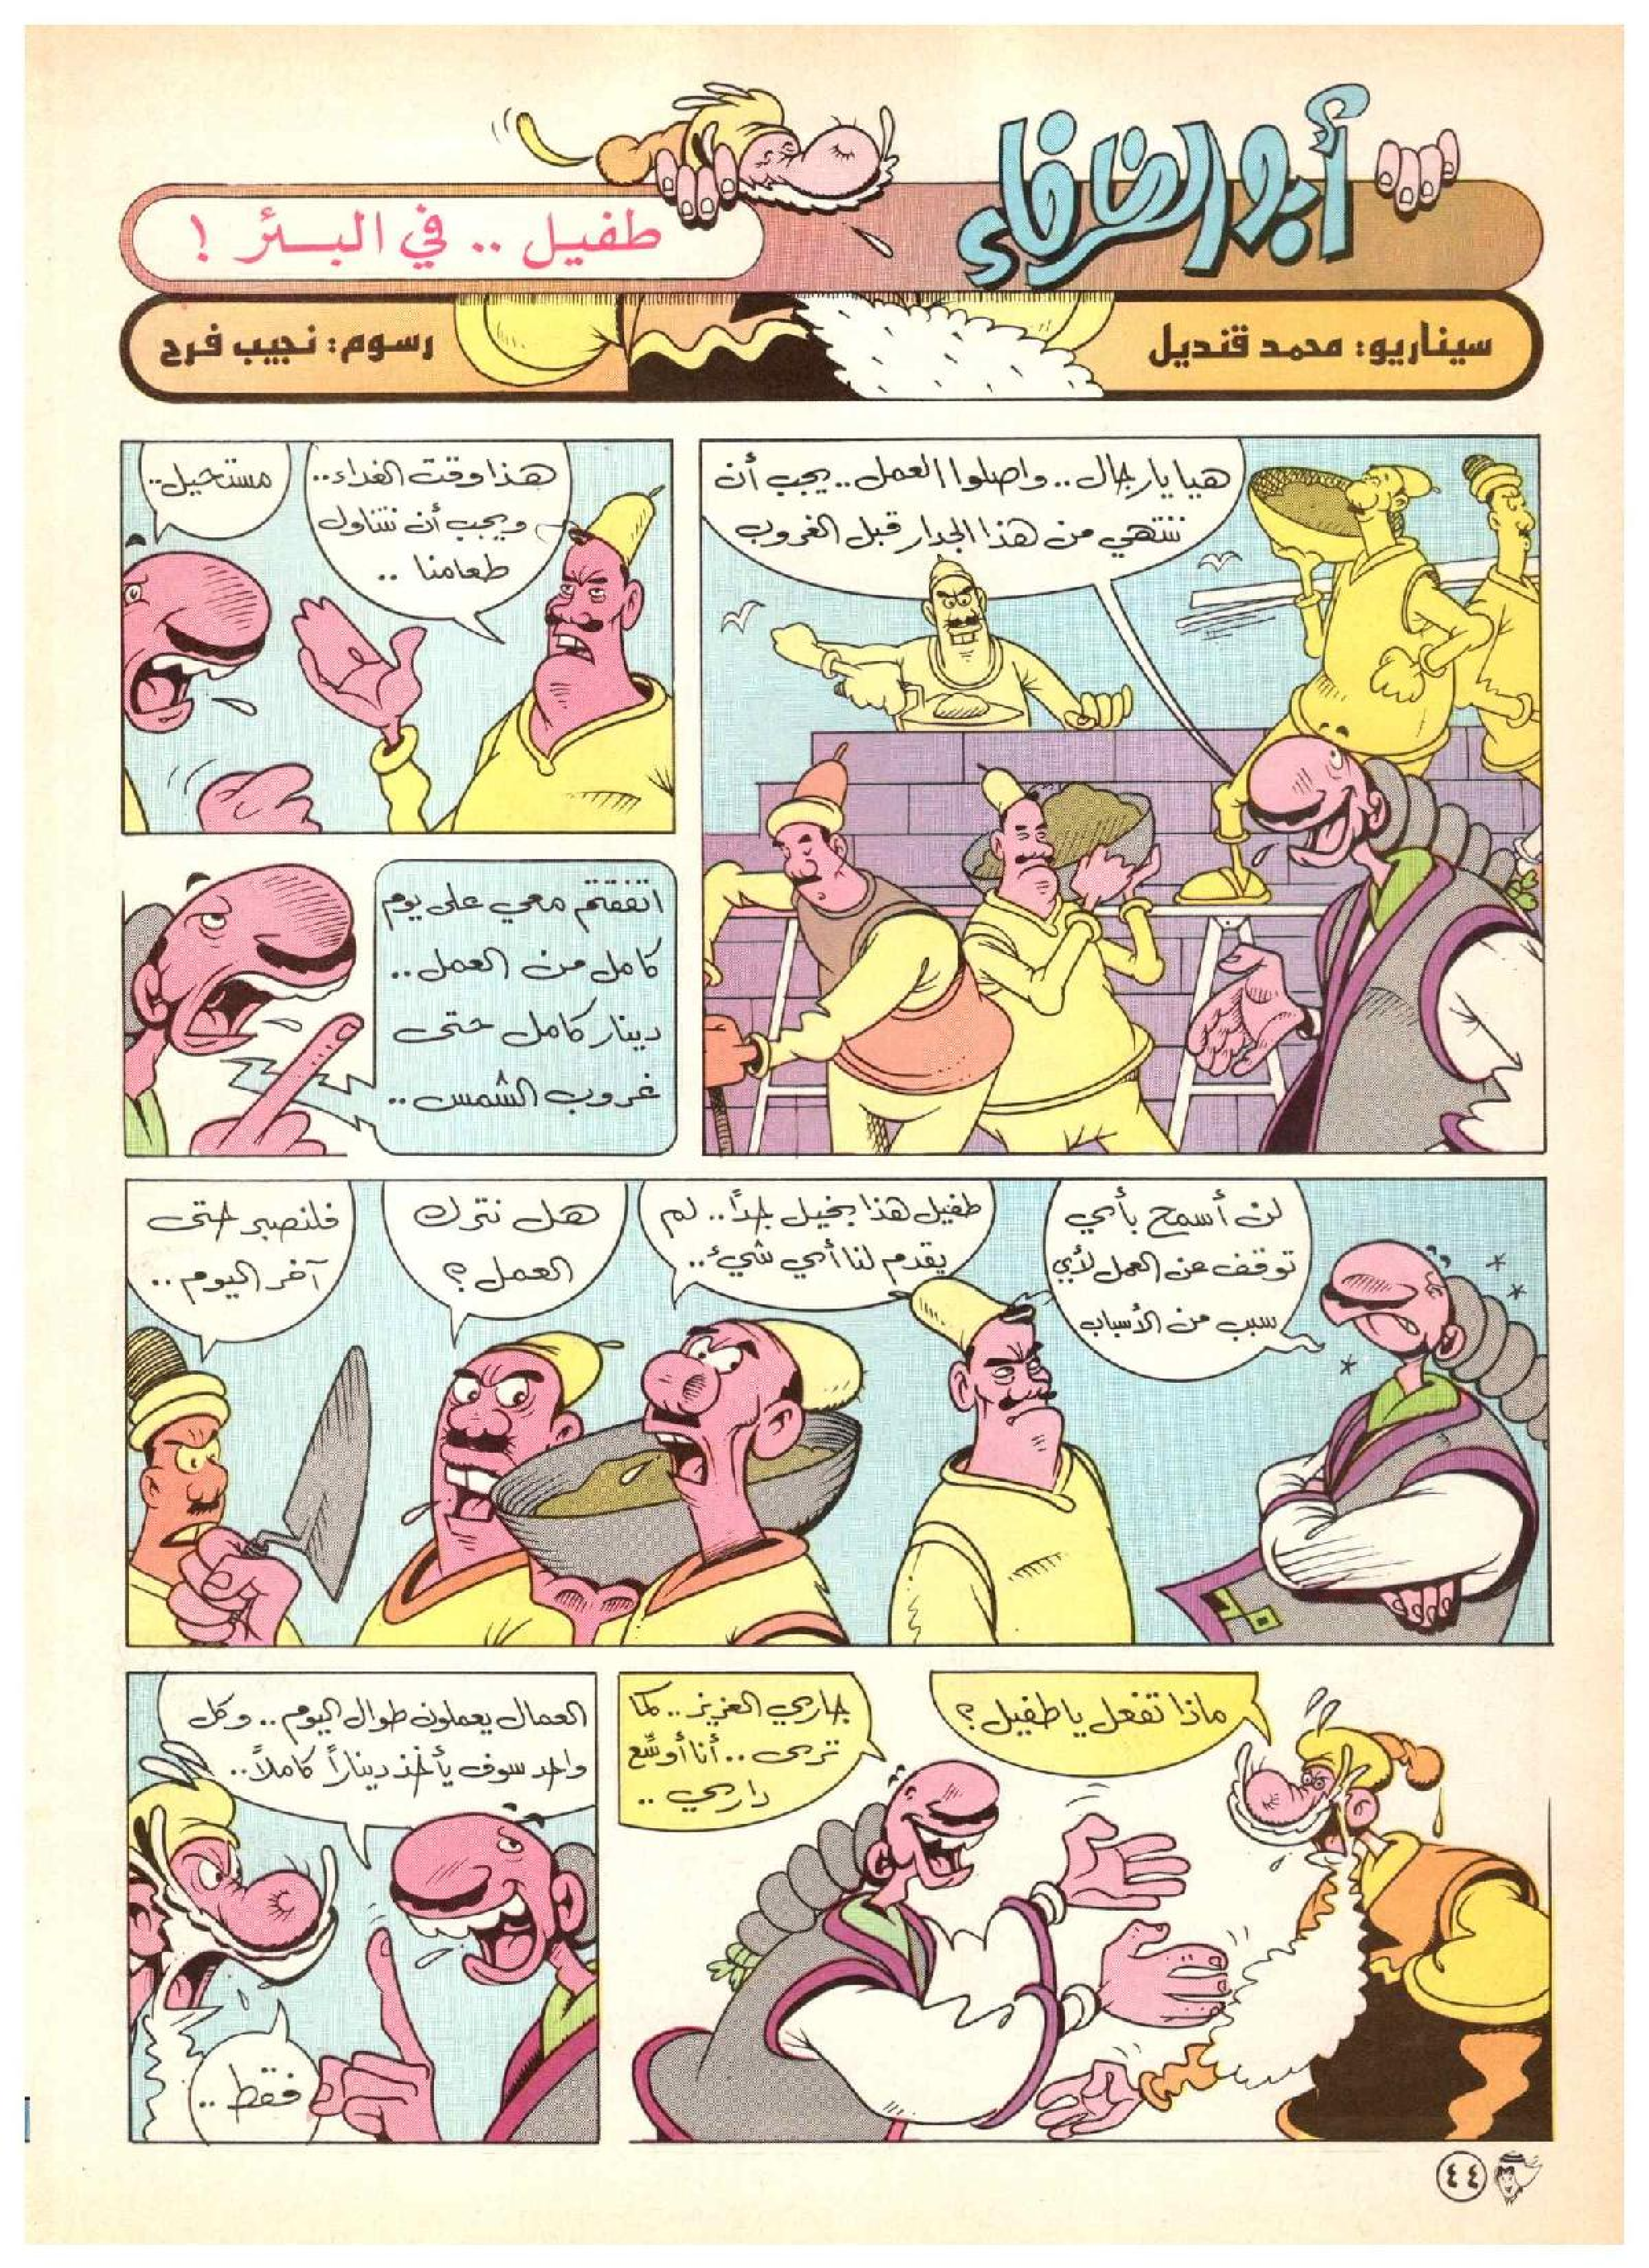 أبو الظرفاء
طفيل .. في البئر !
سيناريو: محمد قنديل
رسوم: نجيب فرح
هيا يا رجال .. واصلوا العمل .. يجب أن
ننتهي من هذا الجدار قبل الغروب
هذا وقت الغداء ..
ويجب أن نتناول
طعامنا ..
مستحيل ..
اتفقتم معي على يوم
كامل من العمل ..
دينار كامل حتى
غروب الشمس ..
لن أسمح بأي
توقف عن العمل لأي
سبب من الأسباب
طفيل هذا بخيل جداً .. لم
يقدم لنا أي شيء ..
هل نترك
العمل ؟
فلنصبر حتى
آخر اليوم ..
ماذا تفعل يا طفيل ؟
جاري العزيز .. كما
ترى .. أنا أوسّع
داري ..
العمال يعملون طوال اليوم .. وكل
واحد سوف يأخذ ديناراً كاملاً ..
فقط ..
٤٤